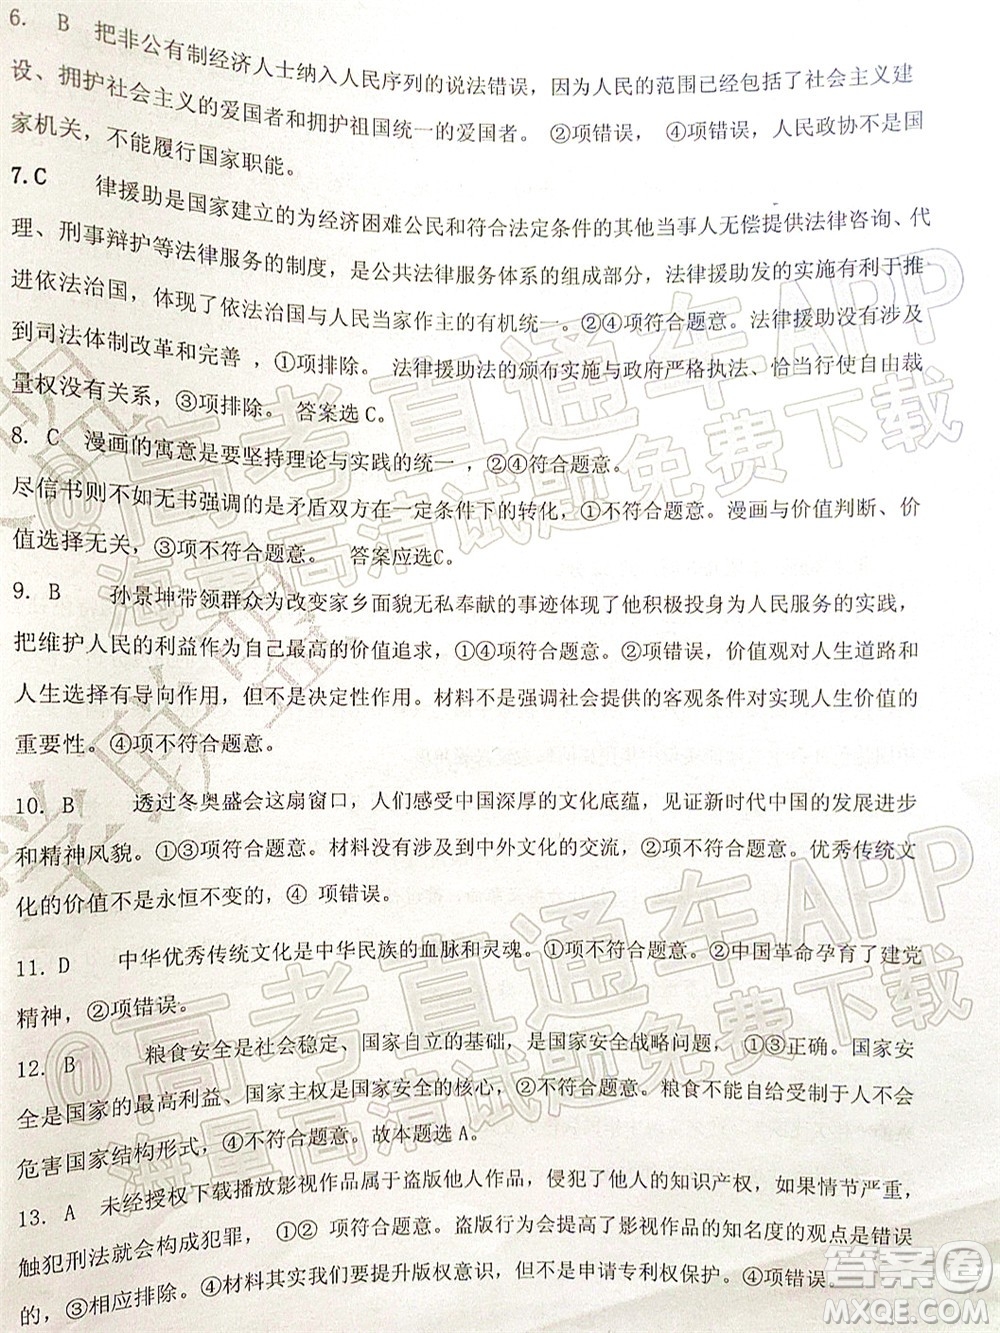 6. B 把非公有制经济人士纳入人民序列的说法错误，因为人民的范围已经包括了社会主义建
设、拥护社会主义的爱国者和拥护祖国统一的爱国者。 ②项错误， ④项错误，人民政协不是国
家机关，不能履行国家职能。
7.C 律援助是国家建立的为经济困难公民和符合法定条件的其他当事人无偿提供法律咨询、代
理、刑事辩护等法律服务的制度，是公共法律服务体系的组成部分，法律援助发的实施有利于推
进依法治国，体现了依法治国与人民当家作主的有机统一。②④项符合题意。法律援助没有涉及
到司法体制改革和完善 ，①项排除。 法律援助法的颁布实施与政府严格执法、恰当行使自由裁
量权没有关系，③项排除。 答案选 C。
8. C 漫画的寓意是要坚持理论与实践的统一 ，②④符合题意。
尽信书则不如无书强调的是矛盾双方在一定条件下的转化，①项不符合题意。漫画与价值判断、价
值选择无关，③项不符合题意。 答案应选C。
9. B 孙景坤带领群众为改变家乡面貌无私奉献的事迹体现了他积极投身为人民服务的实践，
把维护人民的利益作为自己最高的价值追求，①④项符合题意。②项错误，价值观对人生道路和
人生选择有导向作用，但不是决定性作用。材料不是强调社会提供的客观条件对实现人生价值的
重要性。④项不符合题意。
10. B 透过冬奥盛会这扇窗口，人们感受中国深厚的文化底蕴，见证新时代中国的发展进步
和精神风貌。①③项符合题意。材料没有涉及到中外文化的交流，②项不符合题意。优秀传统文
化的价值不是永恒不变的，④ 项错误。
11. D 中华优秀传统文化是中华民族的血脉和灵魂。①项不符合题意。②中国革命孕育了建党
精神，②项错误。
12. B 粮食安全是社会稳定、国家自立的基础，是国家安全战略问题，①③正确。国家安
全是国家的最高利益、国家主权是国家安全的核心，②不符合题意。粮食安全受制于人不会
危害国家结构形式，④不符合题意。故本题选 A。
13. A 未经授权下载播放影视作品属于盗版他人作品，侵犯了他人的知识产权，如果情节严重，
触犯刑法就会构成犯罪， ①② 项符合题意。盗版行为会提高了影视作品的知名度的观点是错误
的，③相应排除。④材料其实我们要提升版权意识，但不是申请专利权保护。④项错误。
@高考直通车APP
海量高清试题免费下载
@高考直通车APP
海量高清试题免费下载
答案圈
MXQE.COM